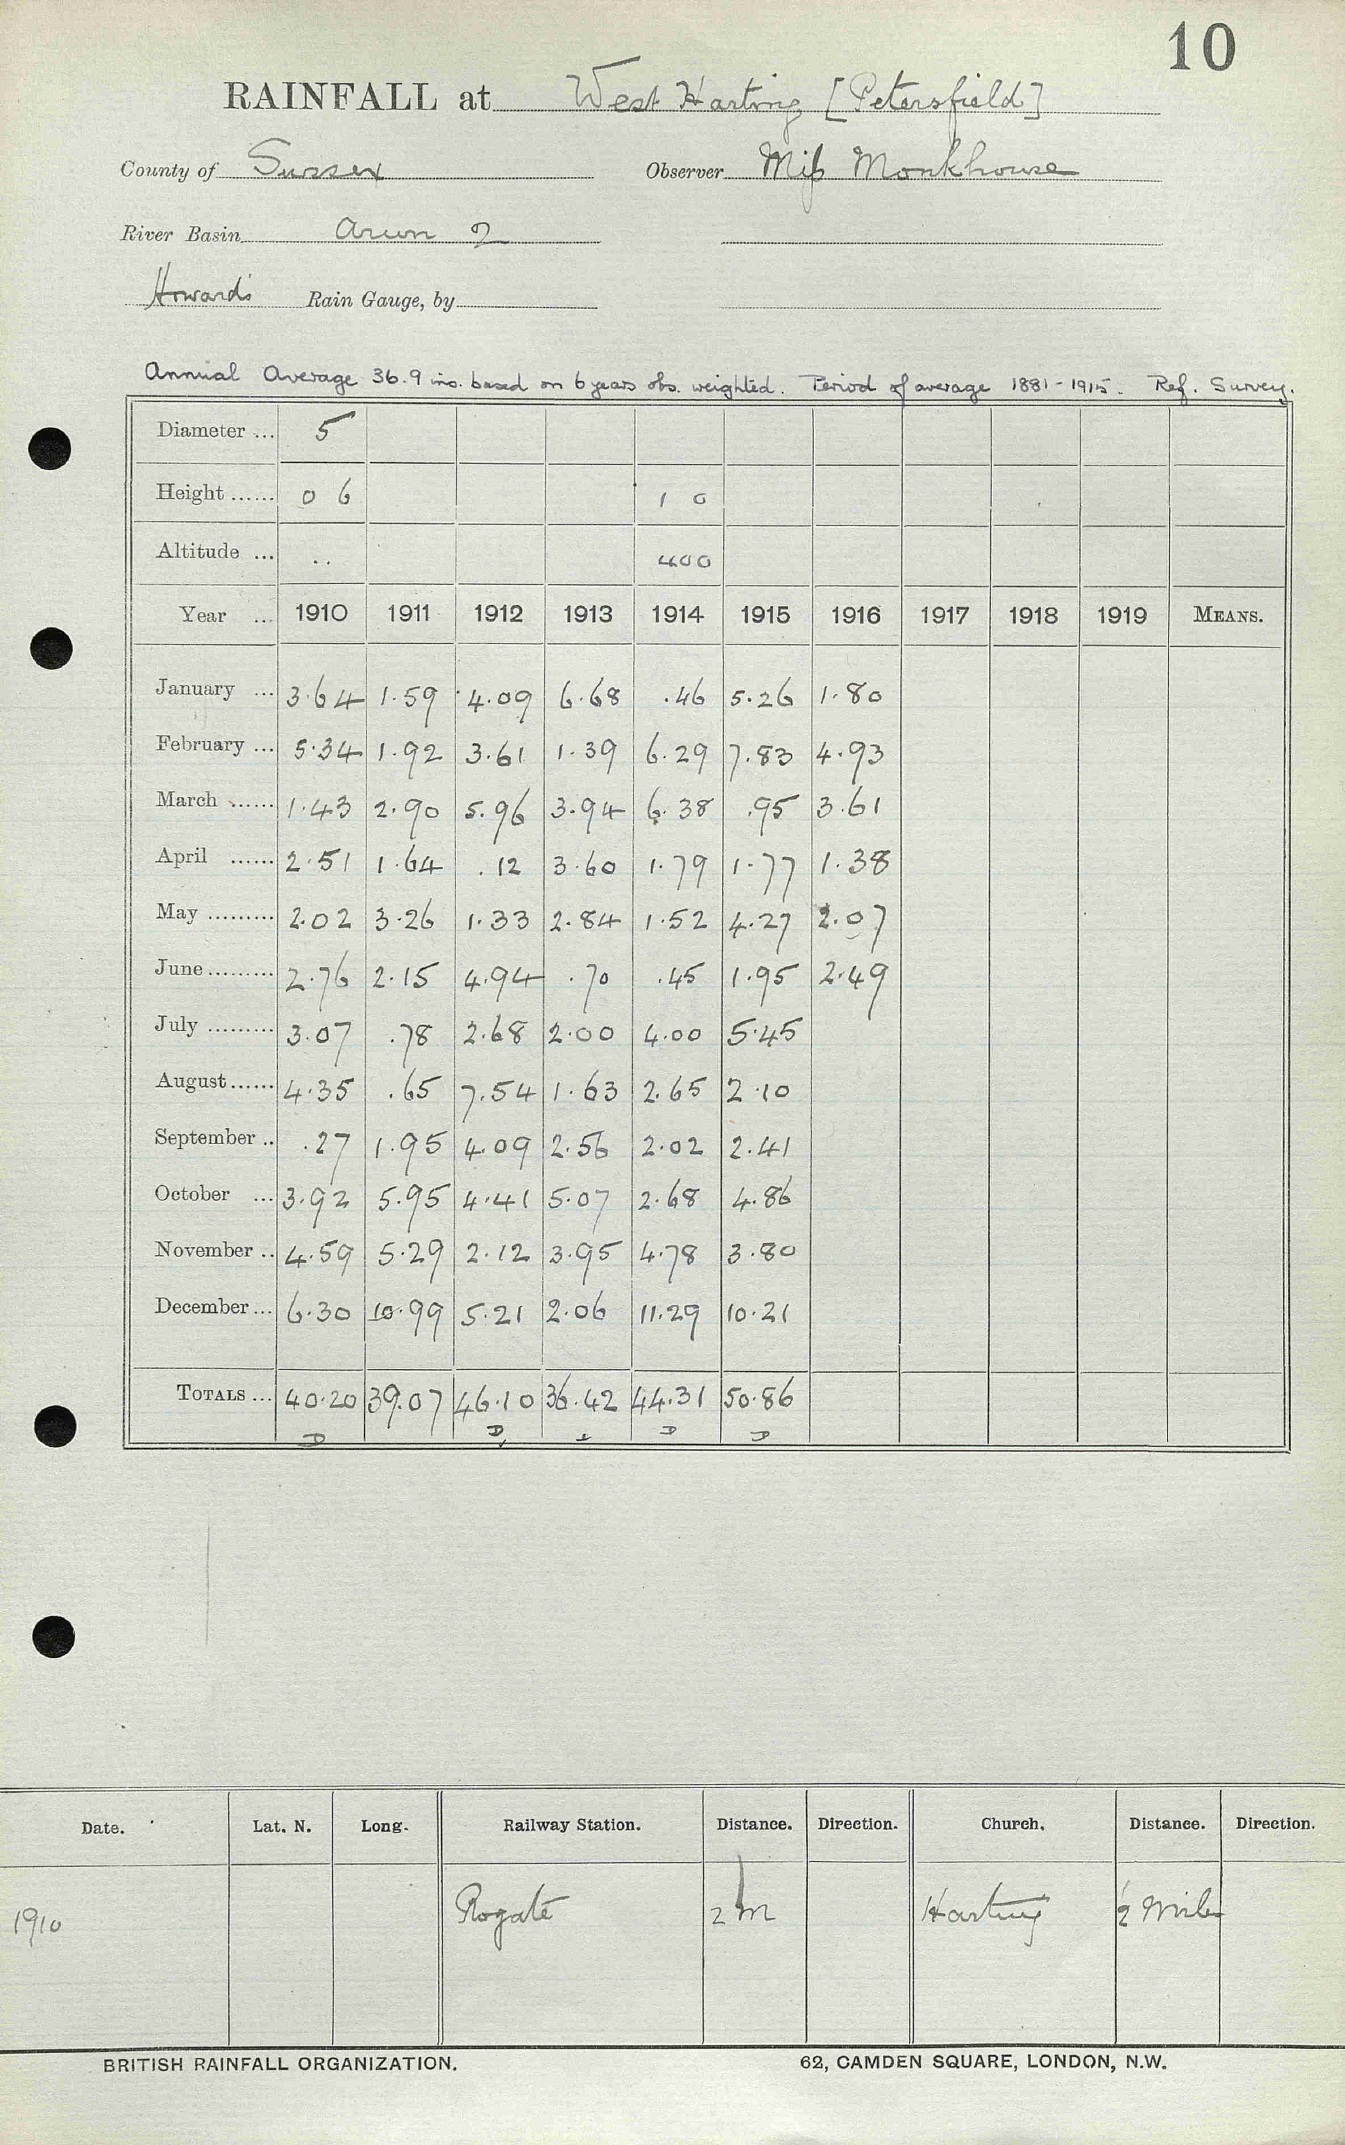 10
RAINFALL at West Harting [Petersfield]
County of Sussex Observer Miss Monkhouse
River Basin Arun 2
Howard's Rain Gauge, by
Annual Average 36.9 ins. based on 6 years obs. weighted. Period of average 1881-1915. Ref. Survey.
Diameter ... 5
Height ...... 0 6 1 0
Altitude ... .. 400
Year ... 1910 1911 1912 1913 1914 1915 1916 1917 1918 1919 MEANS.
January ... 3.64 1.59 4.09 6.68 .46 5.26 1.80
February ... 5.34 1.92 3.61 1.39 6.29 7.83 4.93
March ...... 1.43 2.90 5.96 3.94 6.38 .95 3.61
April ...... 2.51 1.64 .12 3.60 1.79 1.77 1.38
May ......... 2.02 3.26 1.33 2.84 1.52 4.27 2.07
June ......... 2.76 2.15 4.94 .70 .45 1.95 2.49
July ......... 3.07 .78 2.68 2.00 4.00 5.45
August ...... 4.35 .65 7.54 1.63 2.65 2.10
September .. .27 1.95 4.09 2.56 2.02 2.41
October ... 3.92 5.95 4.41 5.07 2.68 4.86
November .. 4.59 5.29 2.12 3.95 4.78 3.80
December ... 6.30 10.99 5.21 2.06 11.29 10.21
TOTALS ... 40.20 39.07 46.10 36.42 44.31 50.86
D D D D
Date. Lat. N. Long. Railway Station. Distance. Direction. Church. Distance. Direction.
1910 Rogate 2 m Harting ½ Mile
BRITISH RAINFALL ORGANIZATION. 62, CAMDEN SQUARE, LONDON, N.W.